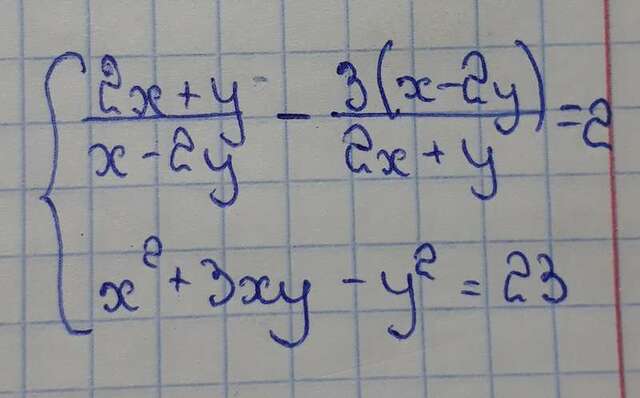 { (2x+y)/(x-2y) - 3(x-2y)/(2x+y) = 2
x² + 3xy - y² = 23